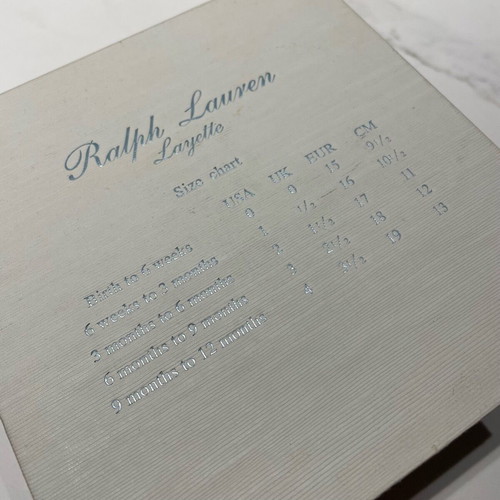 Ralph Lauren
Layette
Size chart
USA UK EUR CM
Birth to 6 weeks 0 0 15 9½
6 weeks to 3 months 1 ½ 16 10½
3 months to 6 months 2 1½ 17 11
6 months to 9 months 3 2½ 18 12
9 months to 12 months 4 3½ 19 13